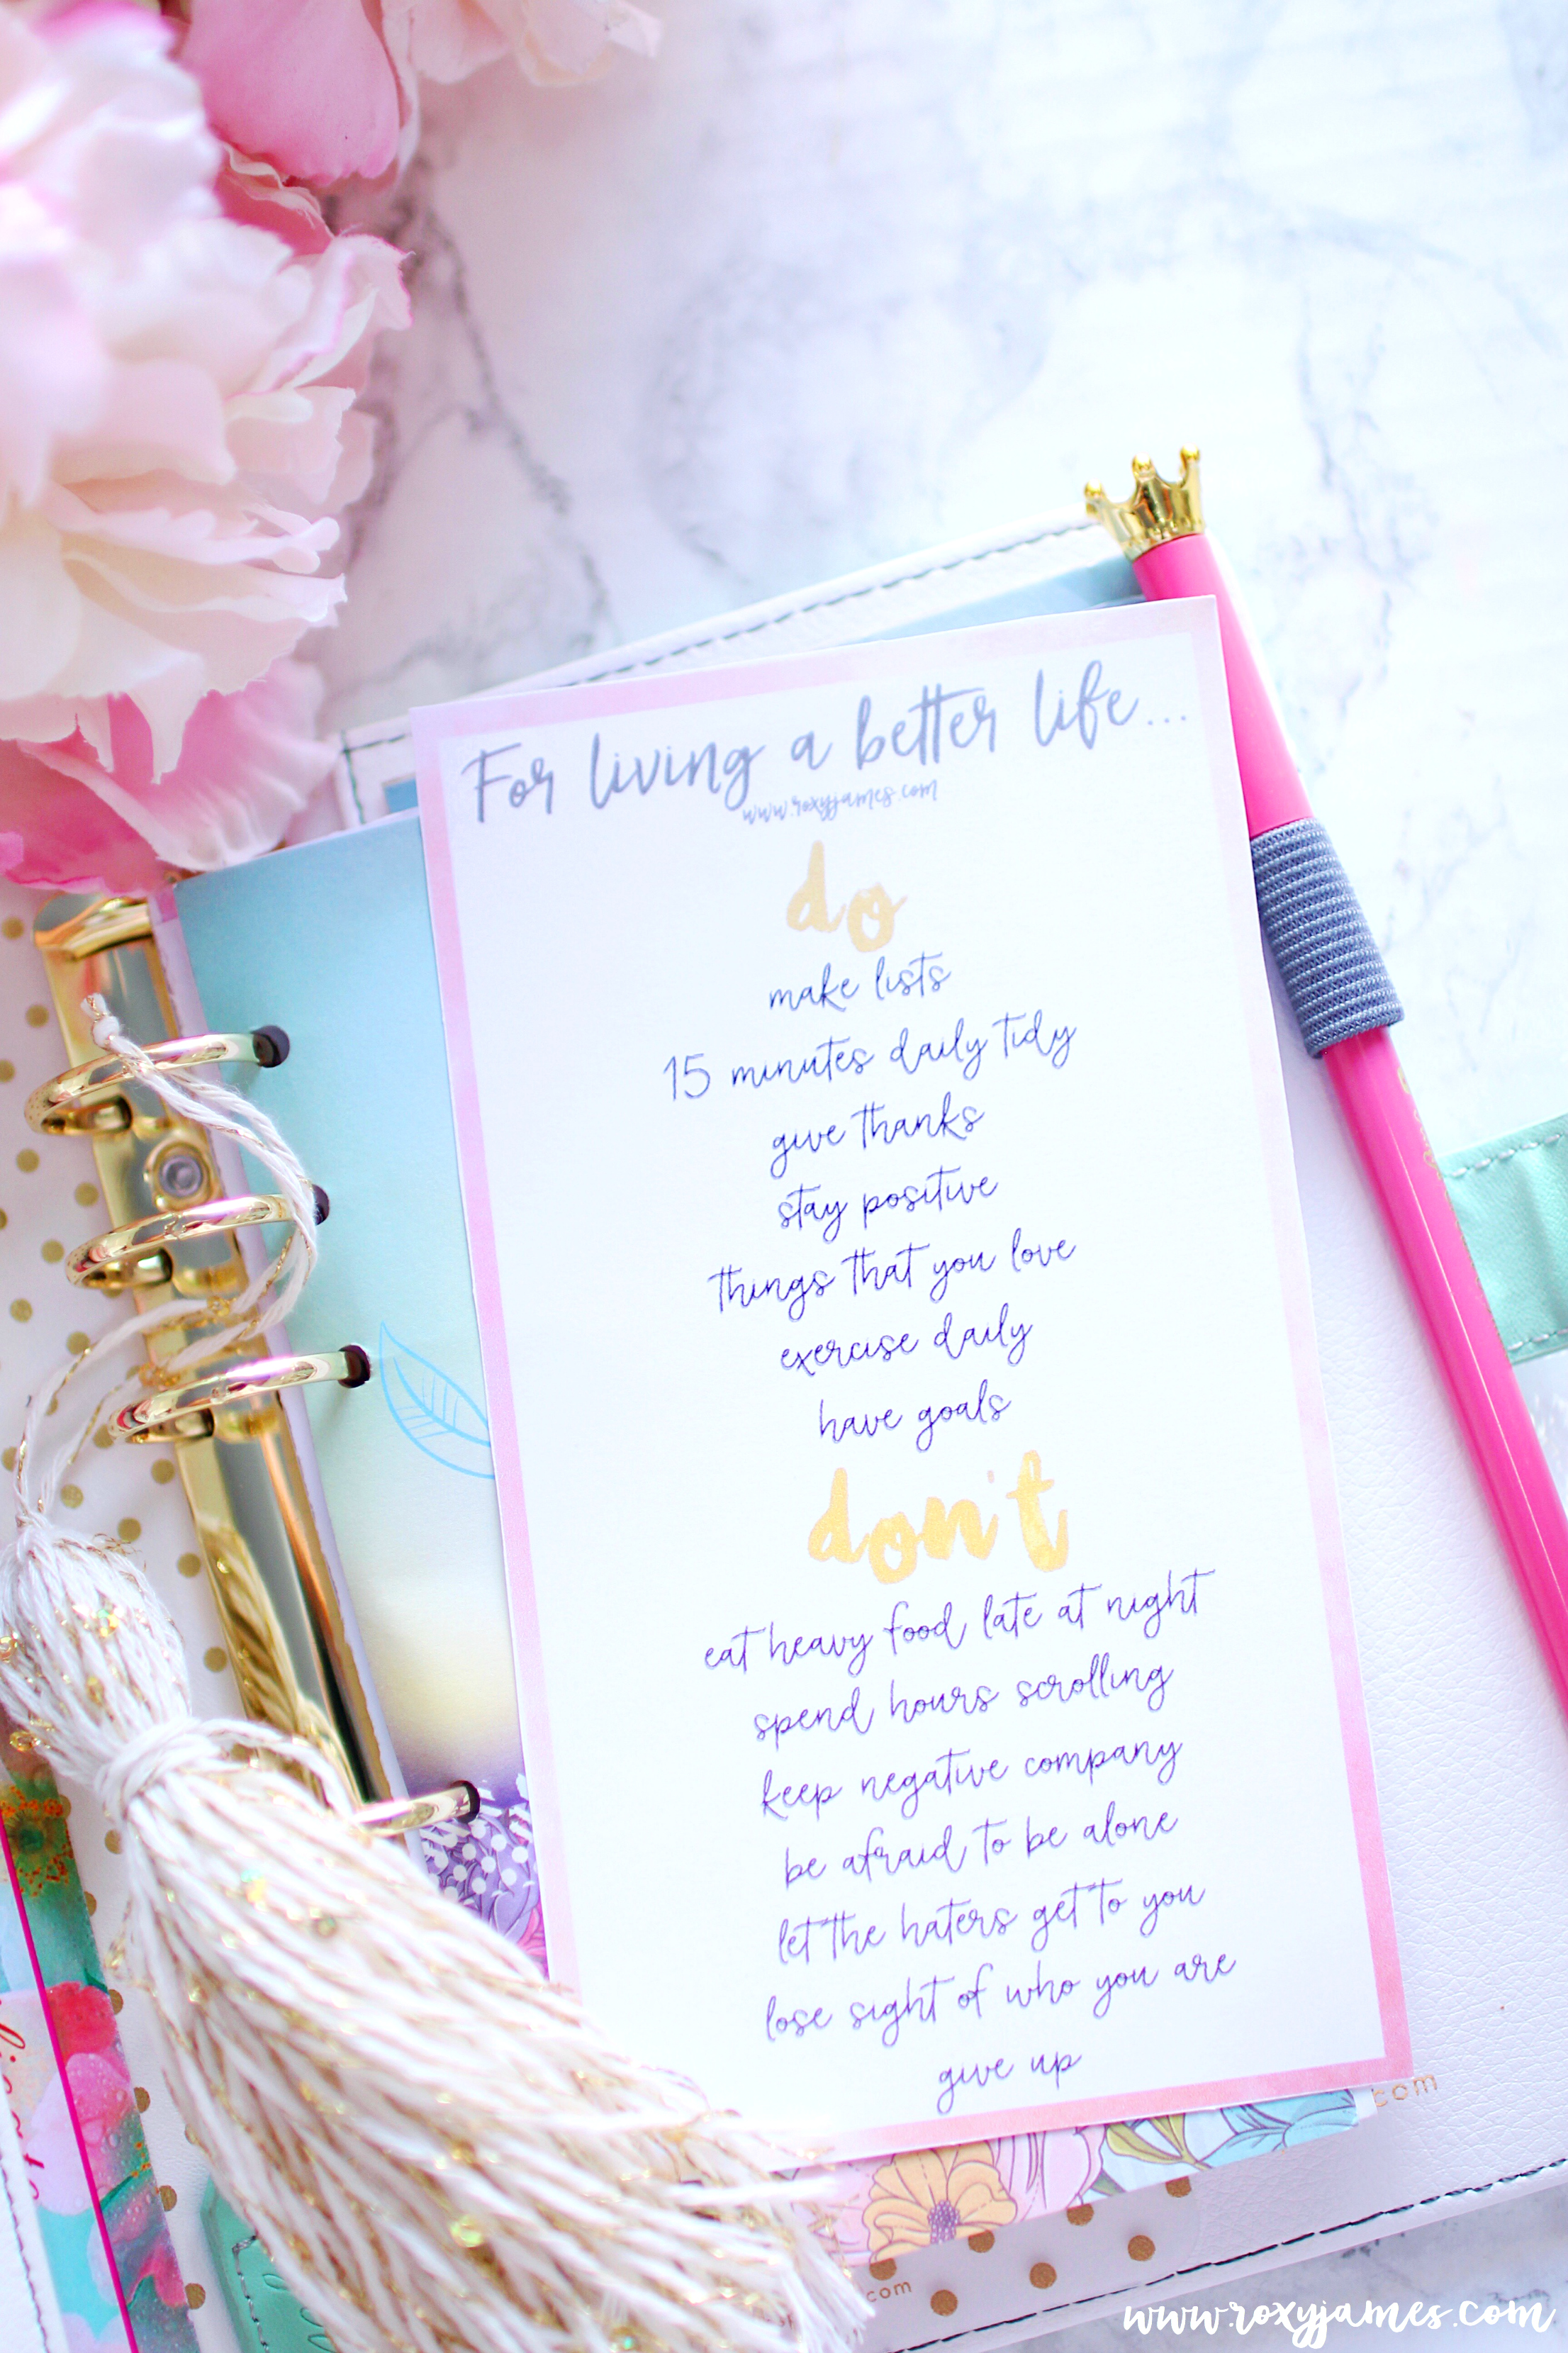 For living a better life...
www.roxyjames.com
do
make lists
15 minutes daily tidy
give thanks
stay positive
things that you love
exercise daily
have goals
don't
eat heavy food late at night
spend hours scrolling
keep negative company
be afraid to be alone
let the haters get to you
lose sight of who you are
give up
.com
.com
www.roxyjames.com